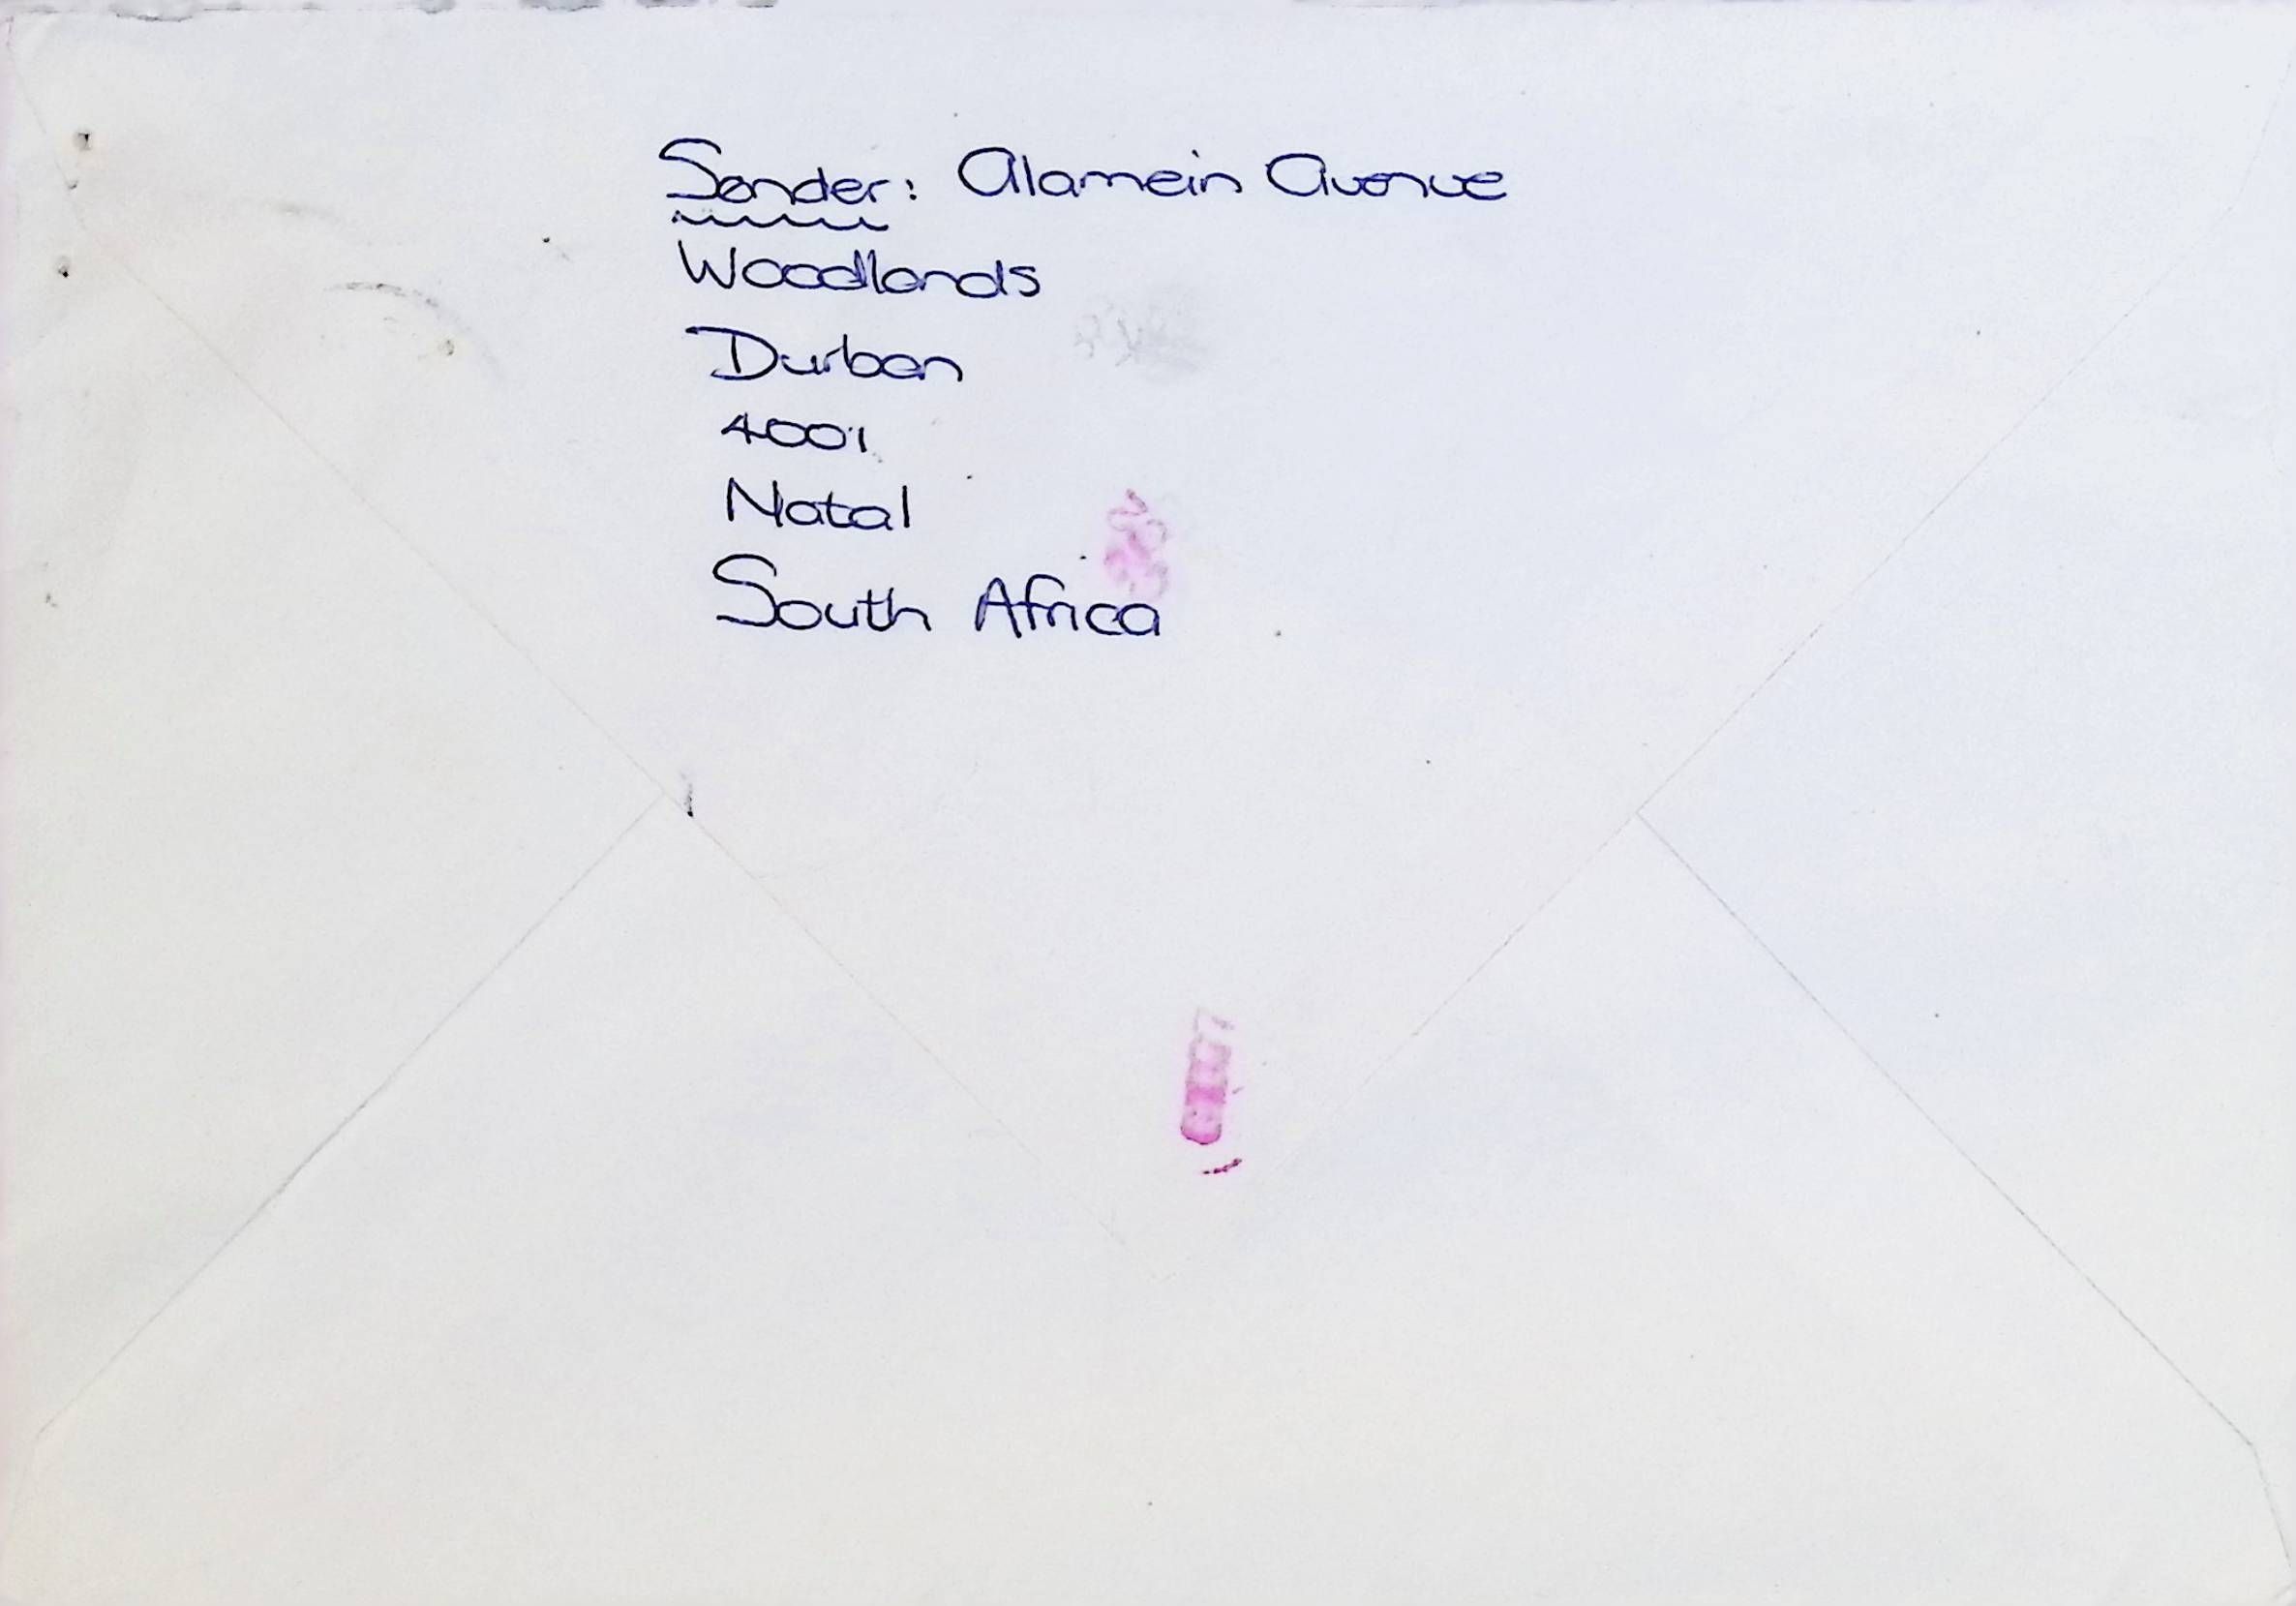 Sender: Alamein Avenue
Woodlands
Durban
4001
Natal
South Africa